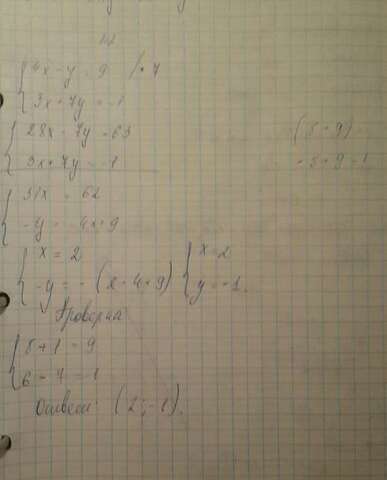 {4x - y = 9 /· 7
{3x + 7y = -1
{28x - 7y = 63
{3x + 7y = -1
{31x = 62
{-y = -4x + 9
{x = 2 {x = 2
y = -1.
Проверка
{8 + 1 = 9
{6 - 7 = 1
Ответ: (2; -1).